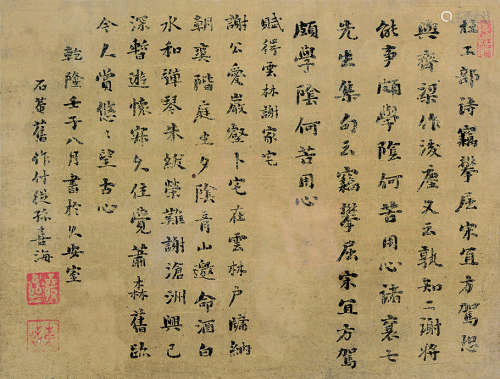 杜工部詩竊攀屈宋宜方駕恐
與齊梁作後塵又云孰知二謝將
能事頗學陰何苦用心諸襄七
先生集句云竊攀屈宋宜方駕
頗學陰何苦用心
賦得雲林謝家宅
謝公愛巖壑卜宅在雲林戶牖納
朝爽階庭生夕陰青山邀命酒白
水和彈琴朱紱榮難謝滄洲興已
深暫遊懷寐久住覺蕭森舊跡
令人賞悠々望古心
乾隆壬子八月書於久安室
石菴舊作付從孫喜海